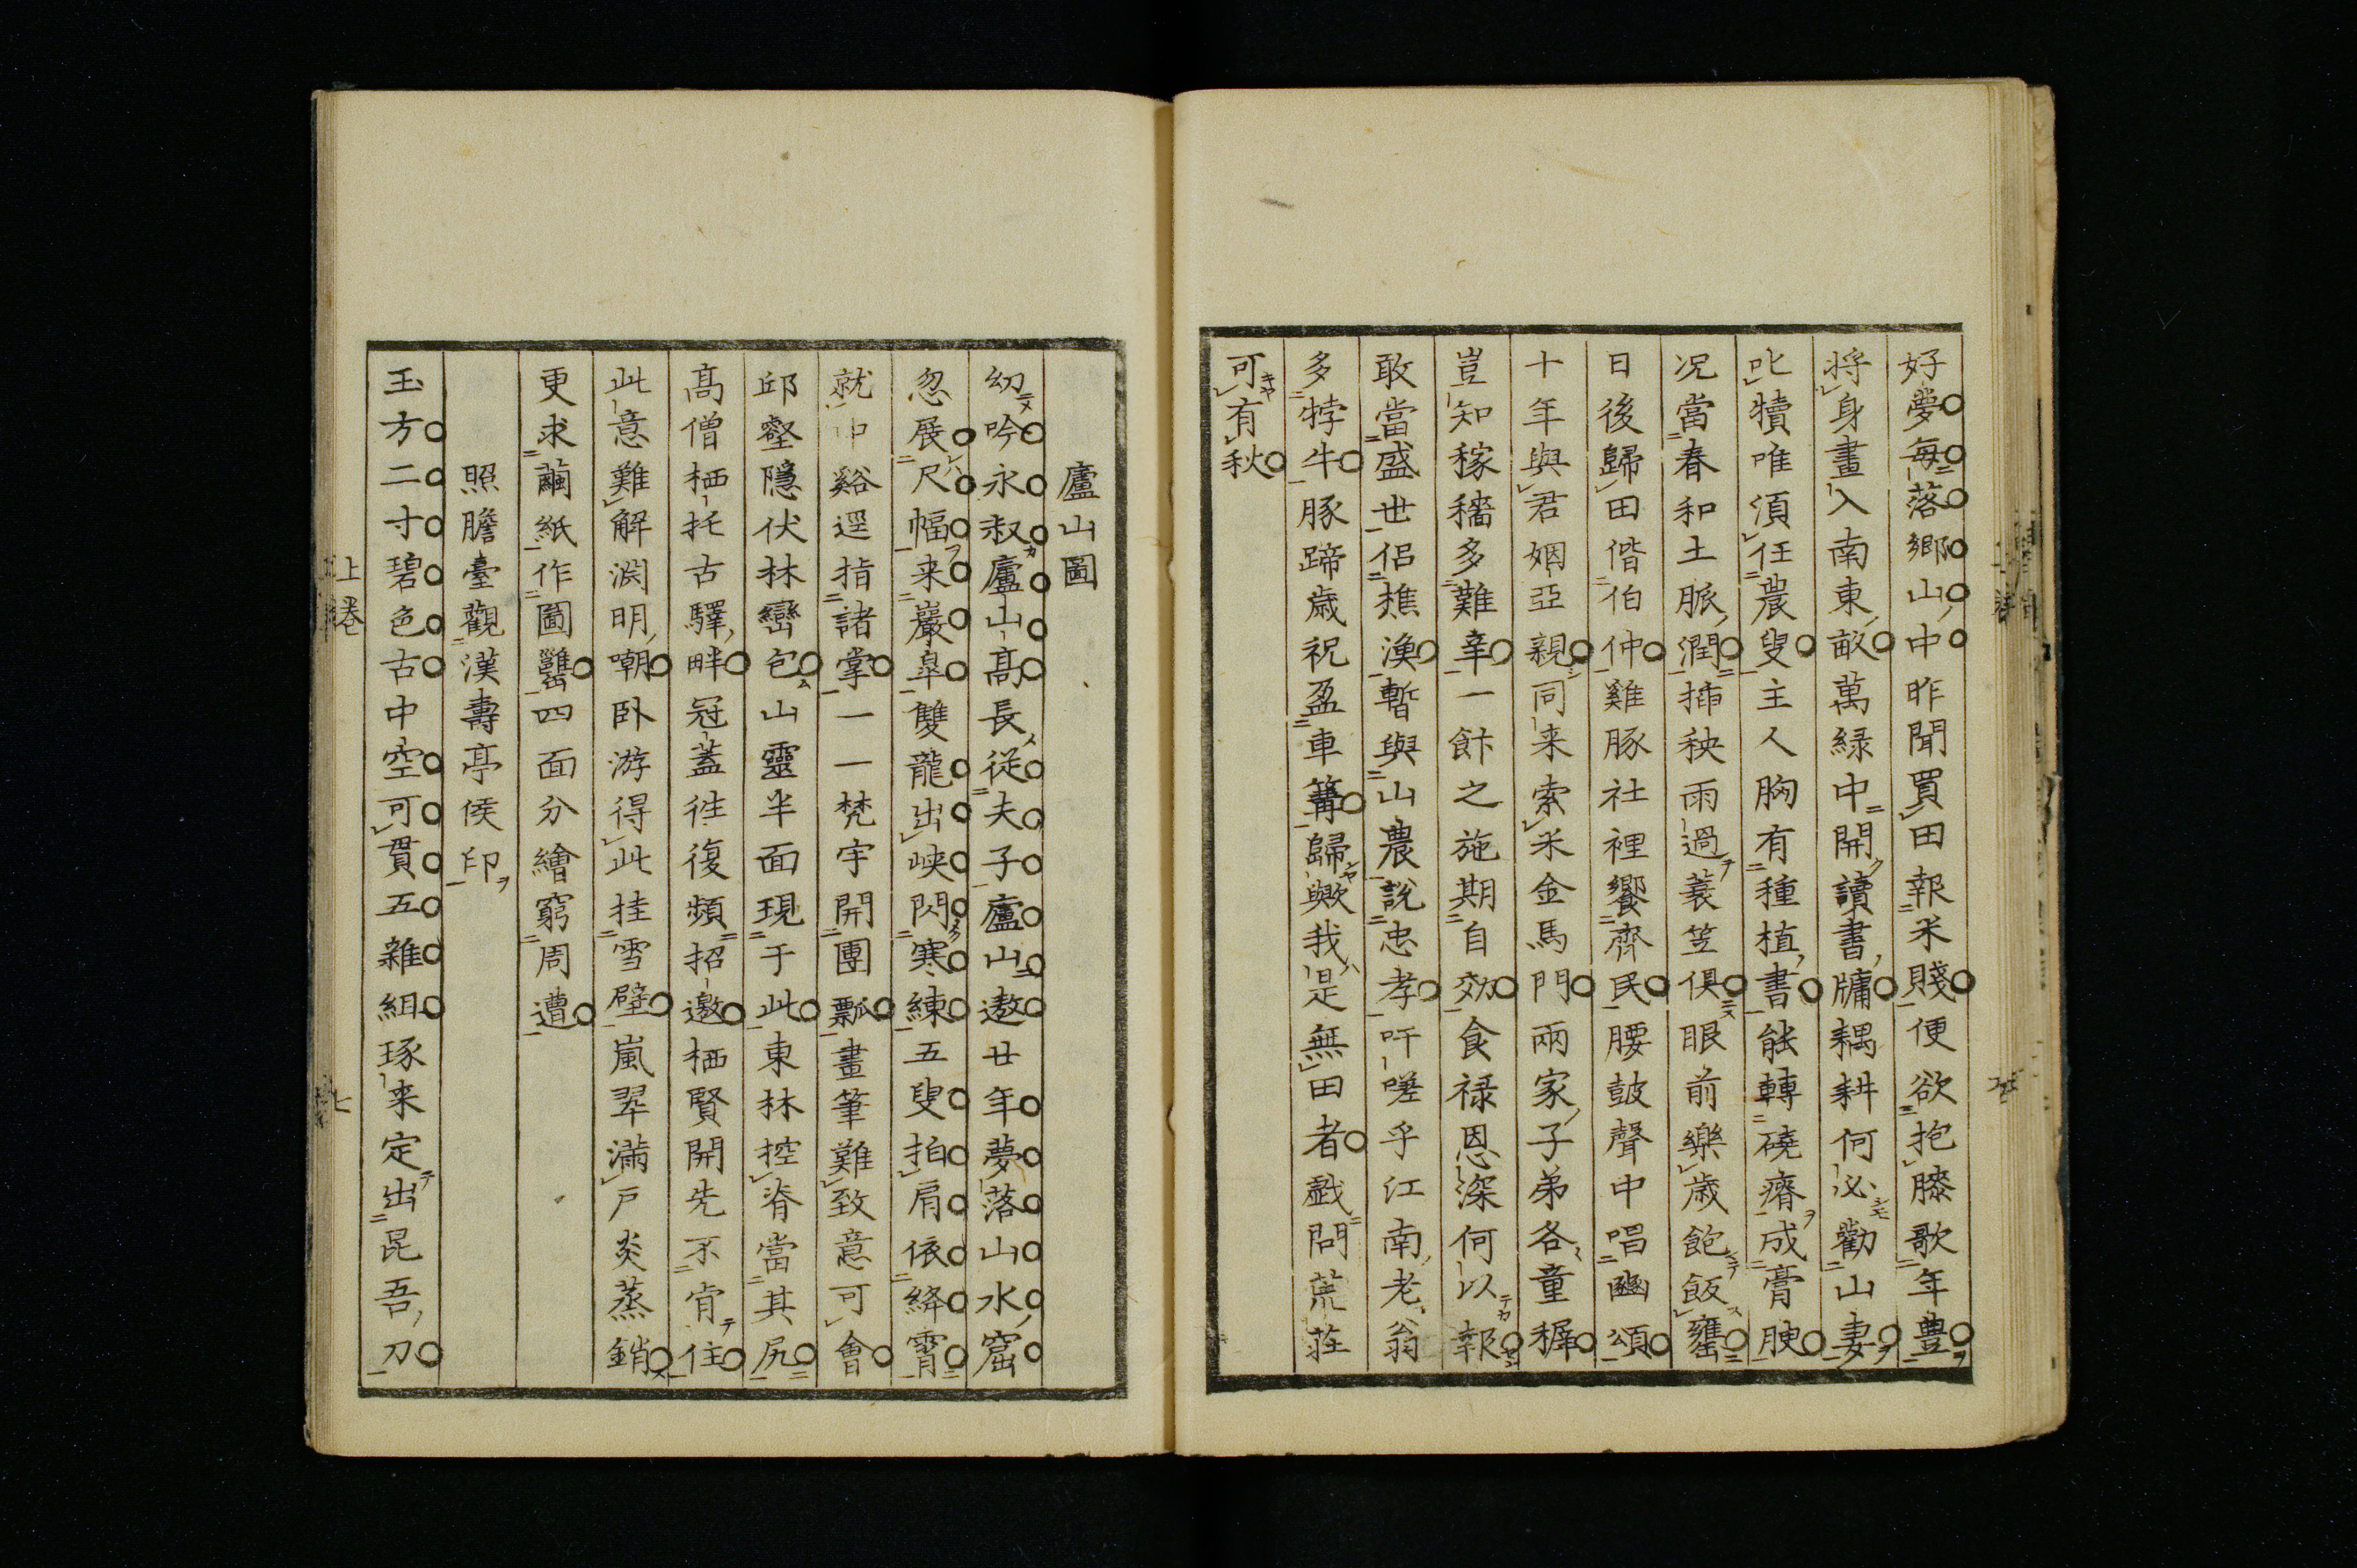 好夢每落鄉山中昨聞買田報米賤便欲抱膝歌年豊
将身畫入南東畝萬緑中開讀書牗耦耕何必勸山妻
叱犢唯須任農叟主人胸有種植書能轉磽瘠成膏腴
况當春和土脈潤挿秧雨過蓑笠俱眼前樂歲飽飯甕
日後歸田偕伯仲雞豚社裡饗齊民腰鼓聲中唱豳頌
十年與君姻亞親同来索米金馬門兩家子弟各童穉
豈知稼穡多難辛一飰之施期自効食禄恩深何以報
敢當盛世侶樵漁暫與山農說忠孝吁嗟乎江南老翁
多牸牛豚蹄歲祝盈車篝歸歟我是無田者戲問荒莊
可有秋
廬山圖
幼吟永叔廬山高長從夫子廬山遨廿年夢落山水窟
忽展尺幅来巖皐雙龍出峽閃寒練五叟拍肩依絳霄
就中谿逕指諸掌一一梵宇開團瓢畫筆難致意可會
邱壑隱伏林巒包山靈半面現于此東林控脊當其尻
髙僧栖托古驛畔冠蓋徃復頻招邀栖賢開先不肯住
此意難解淵明嘲卧游得此挂雪壁嵐翠滿戸炎蒸銷
更求繭紙作圖雟四面分繪窮周遭
照膽臺觀漢壽亭侯印
玉方二寸碧色古中空可貫五雜組琢来定出昆吾刀
上巻
七